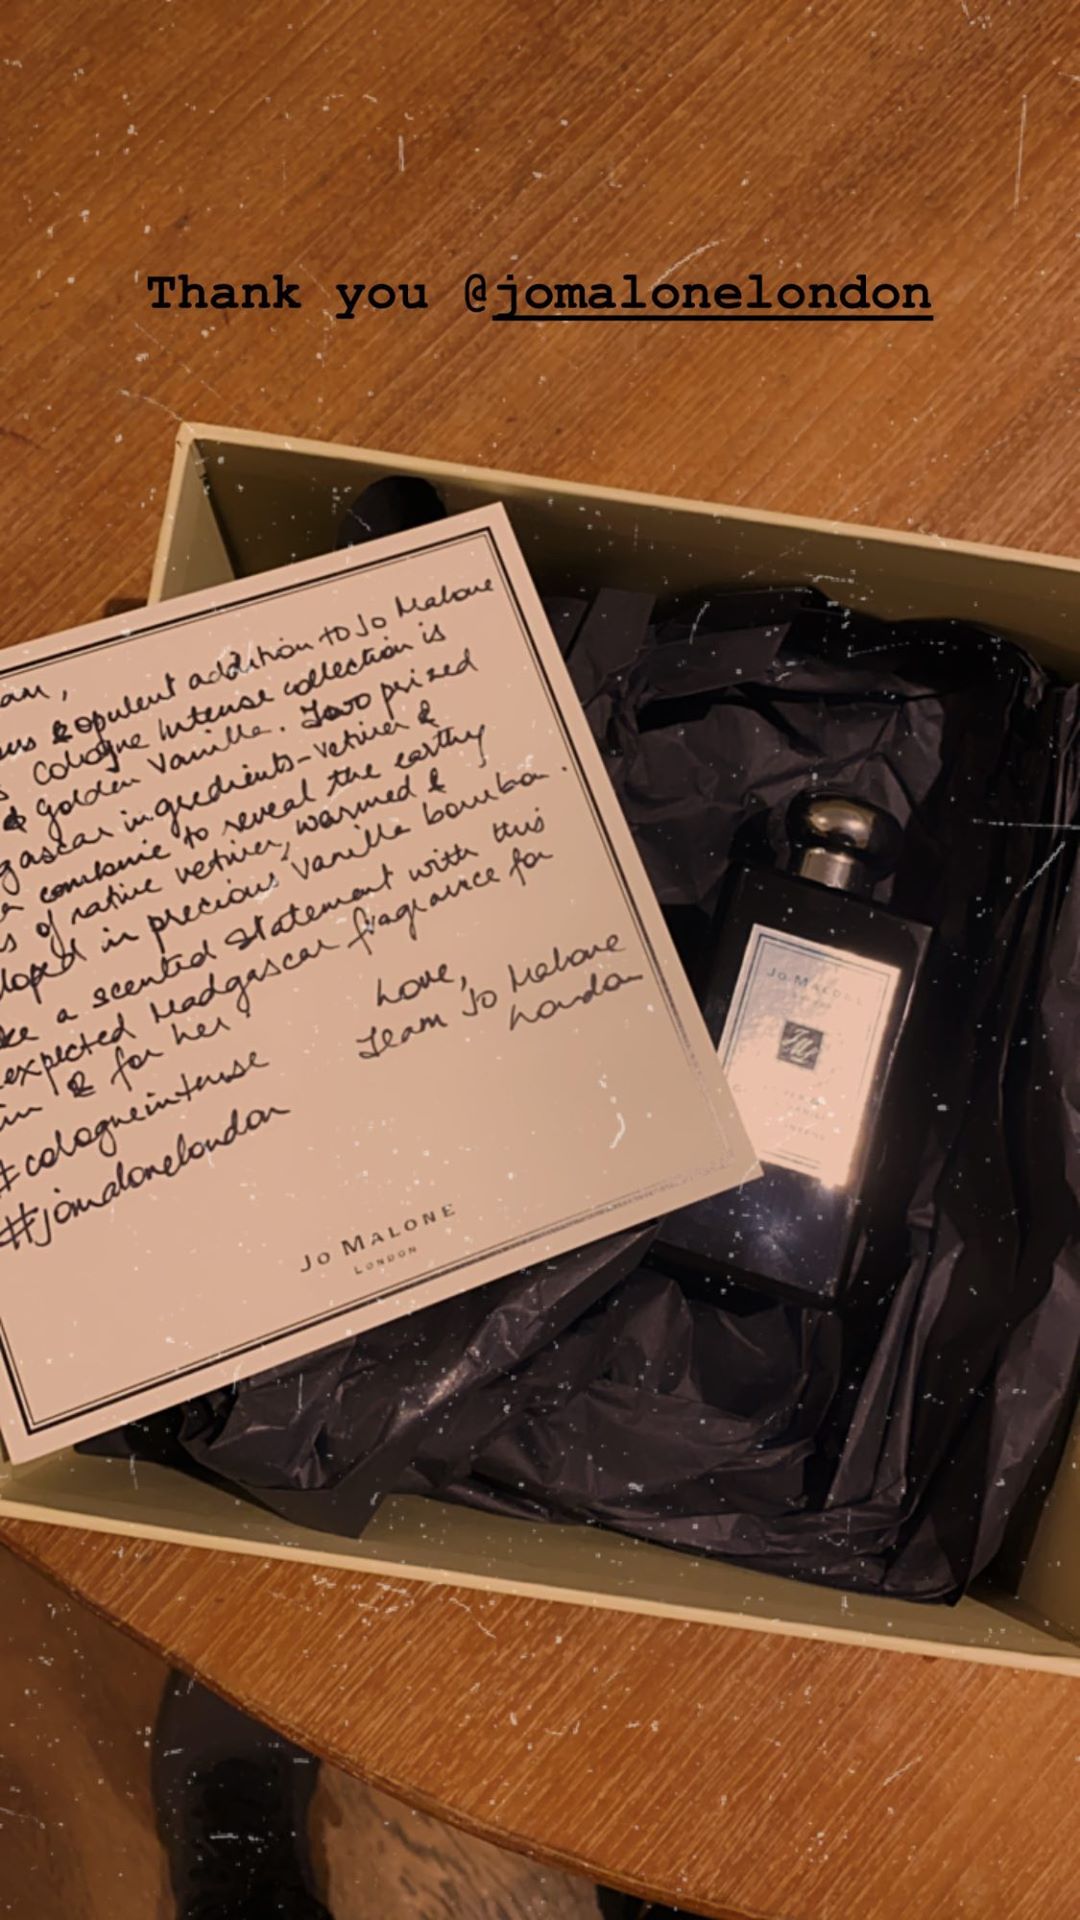 Thank you @jomalonelondon
opulent addition to Jo Malone
Cologne Intense collection is
& Golden Vanilla. Two prized
ingredients - vetiver &
combine to reveal the earthy
of native vetiver, warmed &
in precious vanilla bourbon.
a scented statement with this
expected Madgascar fragrance for
& for her.
Love,
Team Jo Malone
London
#cologneintense
#jomalonelondon
JO MALONE
LONDON
JO MALONE